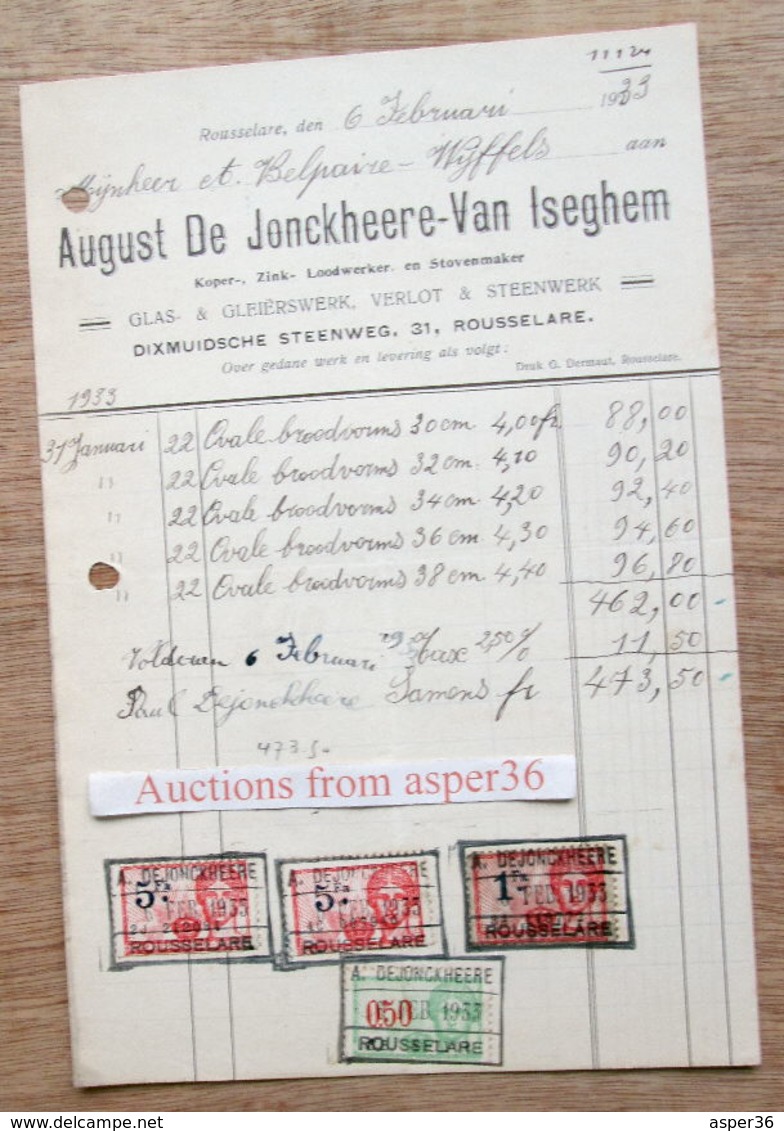 11124
Rousselare, den 6 Februari 1933
Mijnheer et. Belpaire - Wyffels aan
August De Jonckheere-Van Iseghem
Koper-, Zink- Loodwerker. en Stovenmaker
GLAS- & GLEIËRSWERK, VERLOT & STEENWERK
DIXMUIDSCHE STEENWEG, 31, ROUSSELARE.
Over gedane werk en levering als volgt:
Druk G. Dermaut, Rousselare.
1933
31 Januari 22 Ovale broodvorms 30 cm 4,00 fr. 88,00
" 22 Ovale broodvorms 32 cm 4,10 90,20
" 22 Ovale broodvorms 34 cm 4,20 92,40
" 22 Ovale broodvorms 36 cm 4,30 94,60
" 22 Ovale broodvorms 38 cm 4,40 96,80
462,00 -
Voldaan 6 Februari taxe 2,50 % 11,50
Paul Dejonckheere Samens fr 473,50 -
Auctions from asper36
A. DEJONCKHEERE
5 Fr.
6 FEB 1933
ROUSSELARE
A. DEJONCKHEERE
5 Fr.
FEB 1933
ROUSSELARE
A. DEJONCKHEERE
1 Fr.
FEB 1933
ROUSSELARE
A. DEJONCKHEERE
0.50 FEB 1933
ROUSSELARE
delcampe.net
asper36